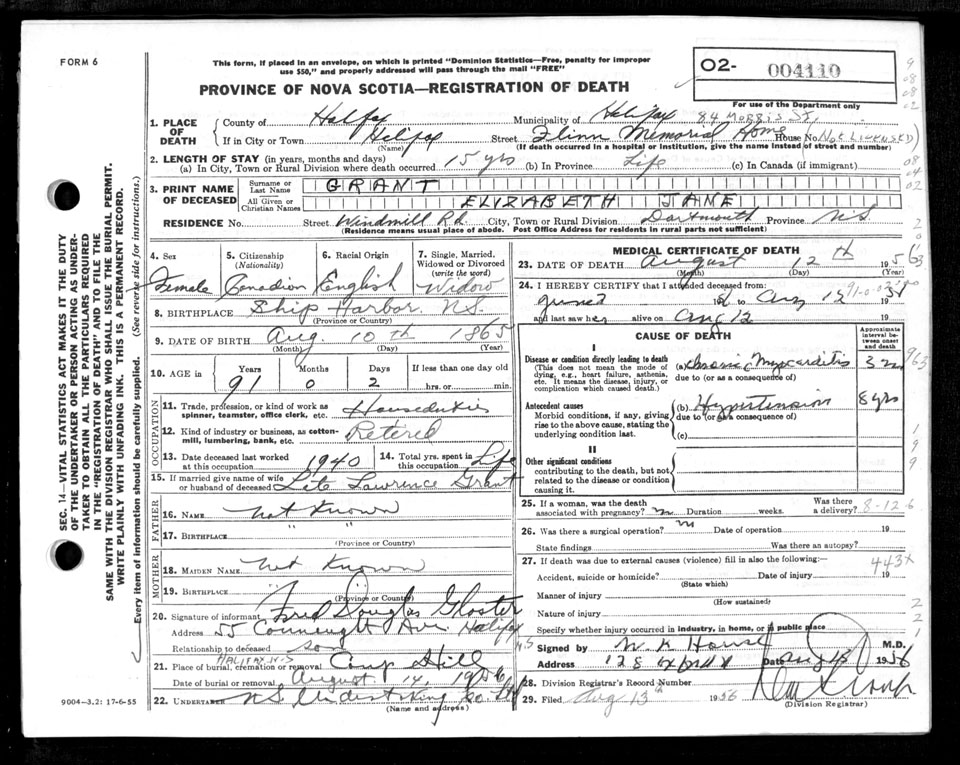 FORM 6
This form, if placed in an envelope, on which is printed "Dominion Statistics—Free, penalty for improper
use $50," and properly addressed will pass through the mail "FREE"
PROVINCE OF NOVA SCOTIA—REGISTRATION OF DEATH
O2- 004110
For use of the Department only
1. PLACE OF DEATH County of Halifax Municipality of Halifax 84 Morris St.
If in City or Town Halifax (Name) Street Flinn Memorial Home House No (Not Licensed)
(If death occurred in a hospital or institution, give the name instead of street and number)
2. LENGTH OF STAY (in years, months and days)
(a) In City, Town or Rural Division where death occurred 15 yrs (b) In Province Life (c) In Canada (if immigrant)
3. PRINT NAME OF DECEASED Surname or Last Name GRANT
All Given or Christian Names ELIZABETH JANE
RESIDENCE No. Street Windmill Rd. City, Town or Rural Division Dartmouth Province N.S.
(Residence means usual place of abode. Post Office Address for residents in rural parts not sufficient)
4. Sex Female
5. Citizenship (Nationality) Canadian
6. Racial Origin English
7. Single, Married, Widowed or Divorced (write the word) Widow
8. BIRTHPLACE Ship Harbor. N.S.
(Province or Country)
9. DATE OF BIRTH Aug. 10th 1865
(Month) (Day) (Year)
10. AGE in Years Months Days If less than one day old
91 0 2 hrs. or min.
OCCUPATION
11. Trade, profession, or kind of work as spinner, teamster, office clerk, etc.
12. Kind of industry or business, as cotton-mill, lumbering, bank, etc. Retired
13. Date deceased last worked at this occupation 1940
14. Total yrs. spent in this occupation Life
15. If married give name of wife or husband of deceased Late Lawrence Grant
FATHER
16. NAME Not Known
17. BIRTHPLACE " "
(Province or Country)
MOTHER
18. MAIDEN NAME Not Known
19. BIRTHPLACE " "
(Province or Country)
20. Signature of informant Fred Douglas Gloster
Address 55 Connaught Ave Halifax N.S
Relationship to deceased son
HALIFAX N-S
21. Place of burial, cremation or removal Camp Hill
Date of burial or removal August 14, 1956
22. UNDERTAKER N S Undertaking Co. Ltd
(Name and address)
9004—3.2: 17-6-55
MEDICAL CERTIFICATE OF DEATH
23. DATE OF DEATH August 12th 1956
(Month) (Day) (Year)
24. I HEREBY CERTIFY that I attended deceased from:
to Aug 12 19
and last saw her alive on Aug 12 19
CAUSE OF DEATH
Approximate interval between onset and death
I
Disease or condition directly leading to death
(This does not mean the mode of dying, e.g., heart failure, asthenia, etc. It means the disease, injury, or complication which caused death.)
(a) Chronic Myocarditis
due to (or as a consequence of)
Antecedent causes
Morbid conditions, if any, giving rise to the above cause, stating the underlying condition last.
(b) Hypertension 8 yrs
due to (or as a consequence of)
(c)
II
Other significant conditions
contributing to the death, but not related to the disease or condition causing it.
25. If a woman, was the death associated with pregnancy? Duration weeks. Was there a delivery? 8-12-6
26. Was there a surgical operation? Date of operation 19
State findings Was there an autopsy?
27. If death was due to external causes (violence) fill in also the following: 443X
Accident, suicide or homicide? Date of injury 19
(State which)
Manner of injury
(How sustained)
Nature of injury
Specify whether injury occurred in industry, in home, or in public place
Signed by M.D.
Address 128 Oxford St Date Aug 1956
28. Division Registrar's Record Number
29. Filed Aug 13th 1956
(Division Registrar)
SEC. 14—VITAL STATISTICS ACT MAKES IT THE DUTY
OF THE UNDERTAKER OR PERSON ACTING AS UNDER-
TAKER TO OBTAIN ALL THE PARTICULARS REQUIRED
IN THE "REGISTRATION OF DEATH" AND TO FILE THE
SAME WITH THE DIVISION REGISTRAR WHO SHALL ISSUE THE BURIAL PERMIT.
WRITE PLAINLY WITH UNFADING INK. THIS IS A PERMANENT RECORD.
Every item of information should be carefully supplied. (See reverse side for instructions.)